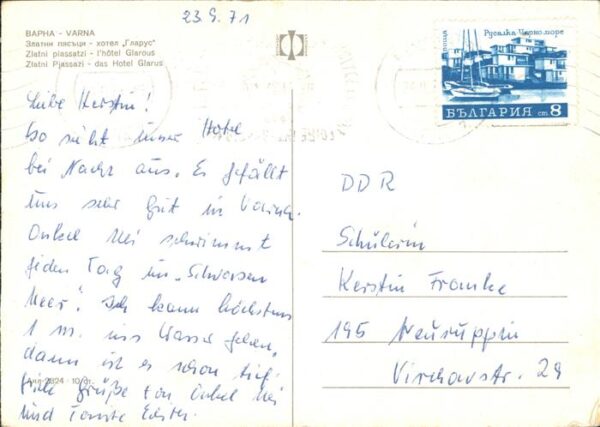 23.9.71
ВАРНА - VARNA
Златни пясъци - хотел „Гларус"
Zlatni plassatzi - l'hôtel Glarous
Zlatni Pjassazi - das Hotel Glarus
Русалка Черно море
БЪЛГАРИЯ ст 8
Liebe Kerstin!
So sieht unser Hotel
bei Nacht aus. Es gefällt
uns sehr gut in Varna.
Onkel Hei schwimmt
jeden Tag im „Schwarzen
Meer". Ich kann höchstens
1 m. ins Wasser gehen,
dann ist es schon tief.
Viele Grüße von Onkel Hei
und Tante Edith.
DDR
Schülerin
Kerstin Franke
195 Neuruppin
Virchowstr. 29